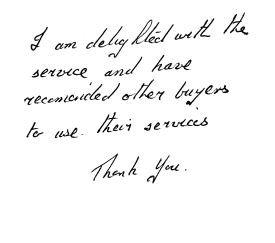 I am delighted with the
service and have
recomended other buyers
to use. their services
Thank You.